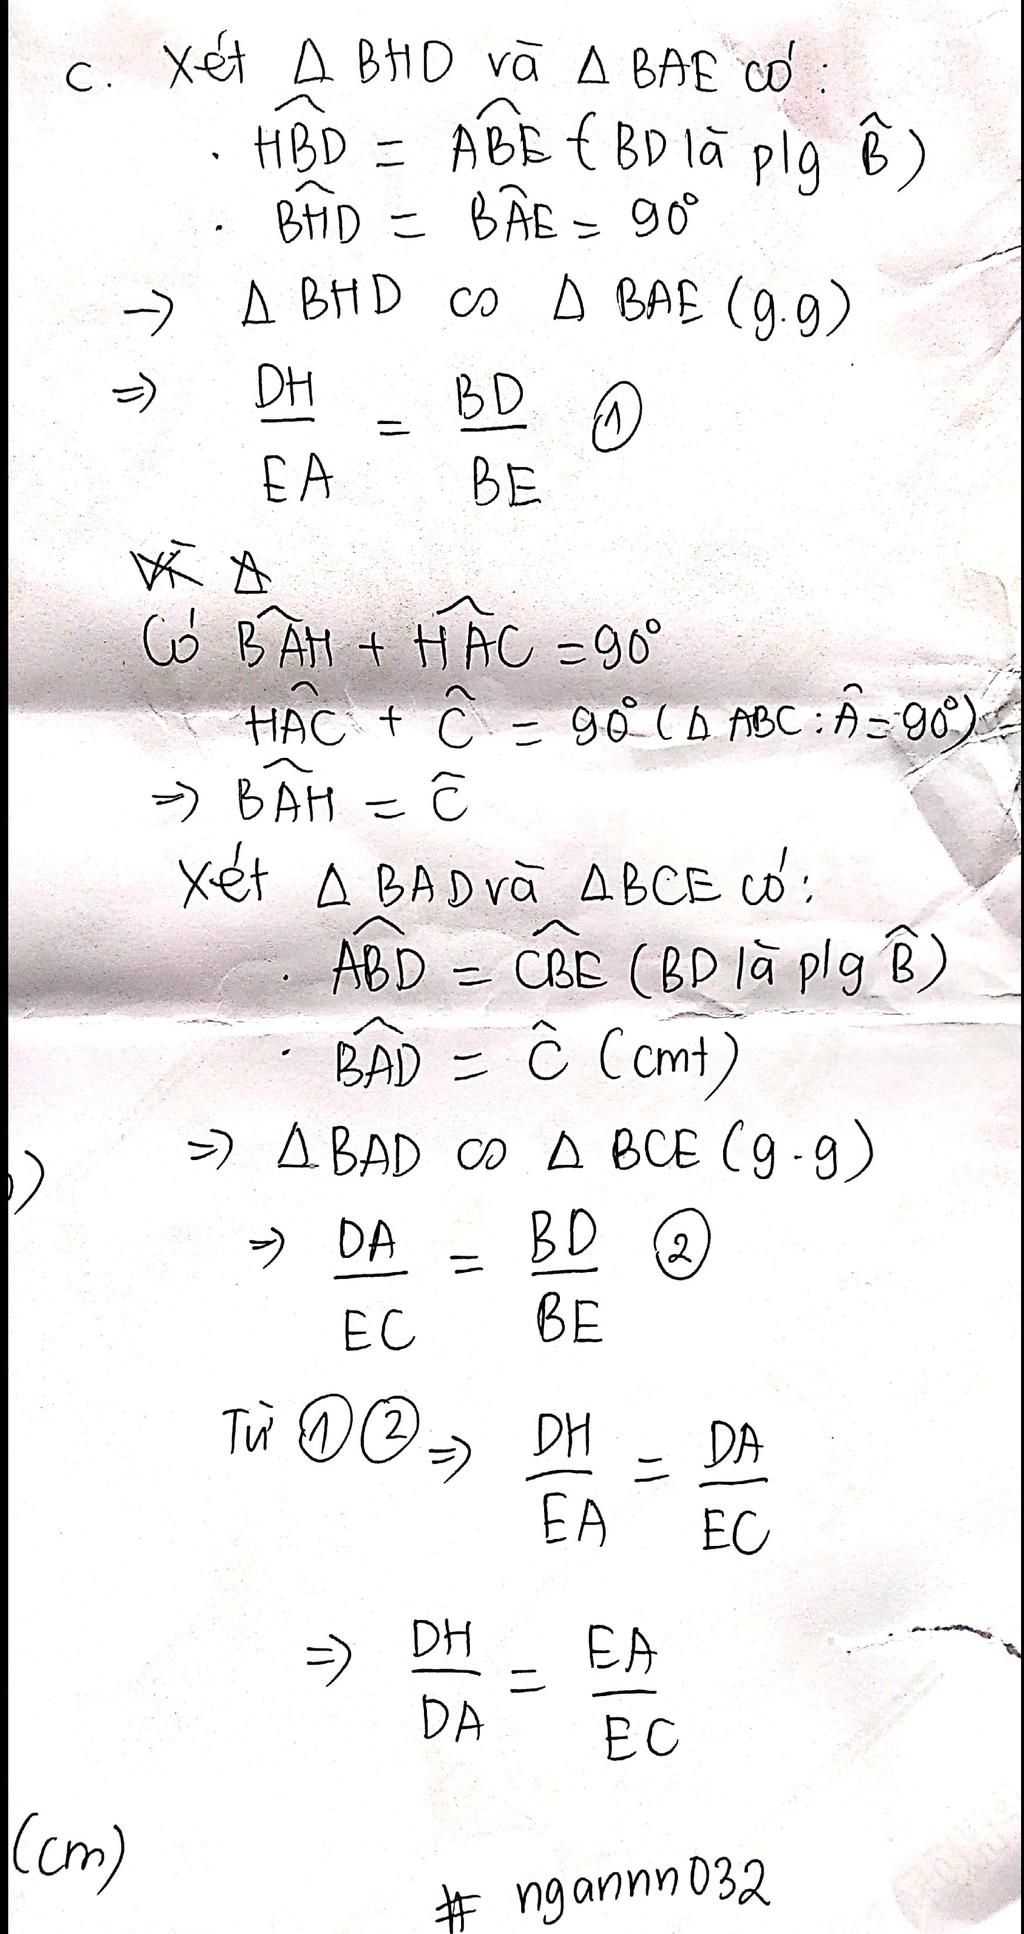 c. Xét Δ BHD và Δ BAE có:
· HBD^ = ABE^ (BD là plg B̂)
· BHD^ = BAE^ = 90°
→ Δ BHD ∽ Δ BAE (g.g)
⇒ DH/EA = BD/BE ①
Có BAH^ + HAC^ = 90°
HAC^ + Ĉ = 90° (Δ ABC: Â = 90°)
⇒ BAH^ = Ĉ
Xét Δ BAD và Δ BCE có:
· ABD^ = CBE^ (BD là plg B̂)
· BAD^ = Ĉ (cmt)
⇒ Δ BAD ∽ Δ BCE (g.g)
⇒ DA/EC = BD/BE ②
Từ ①② ⇒ DH/EA = DA/EC
⇒ DH/DA = EA/EC
(cm)
# ngannn032